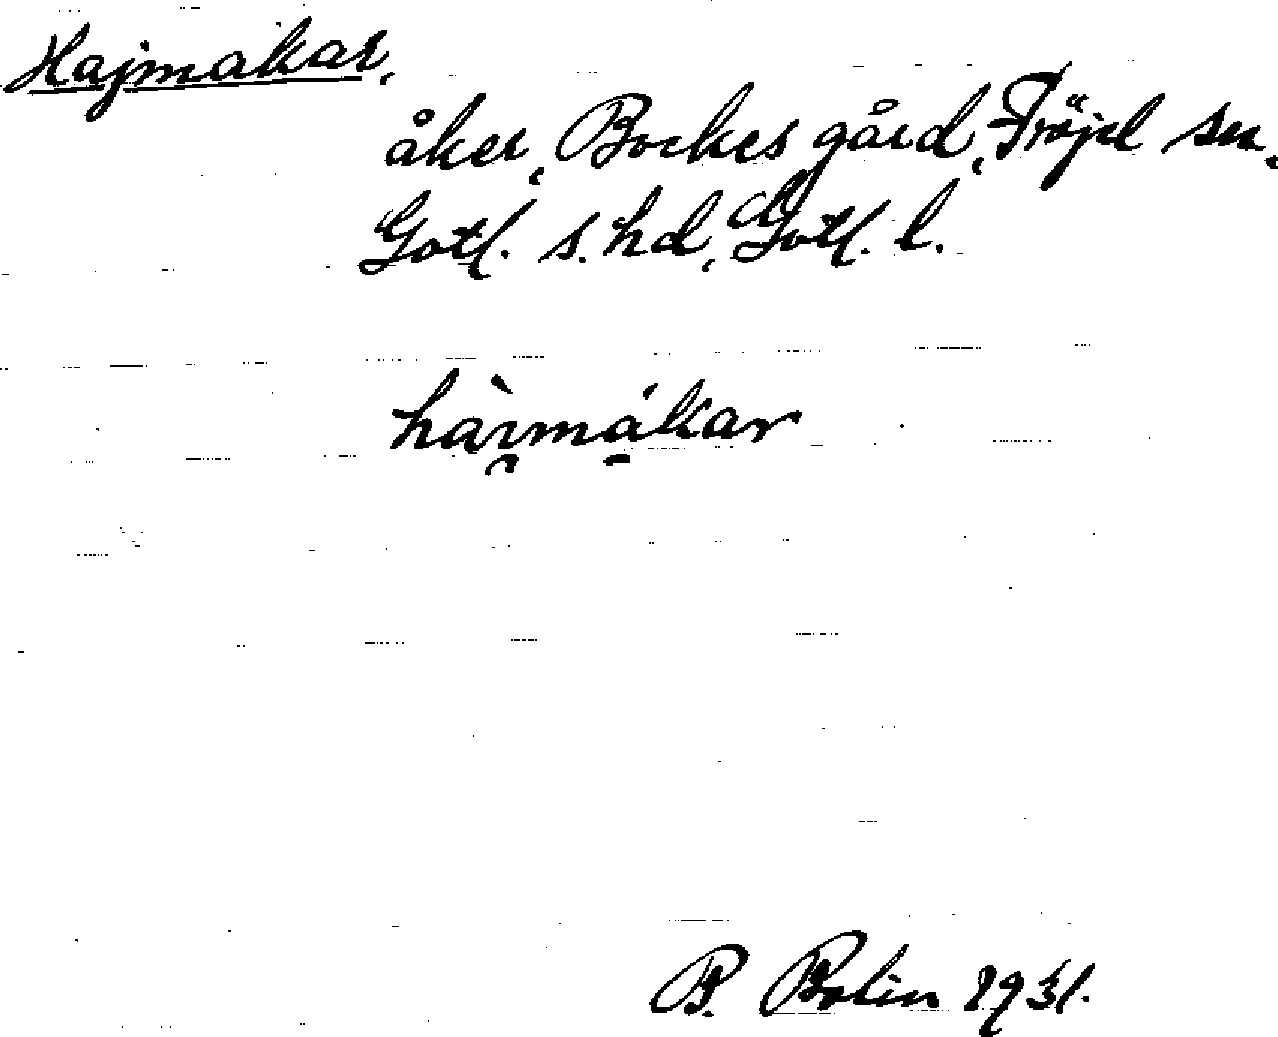 Hajmakar,
åker, Bockes gård, Fröjel sn,
Gotl. s. hd, Gotl. l.
hàı̯mákar
B. Bolin 1931.